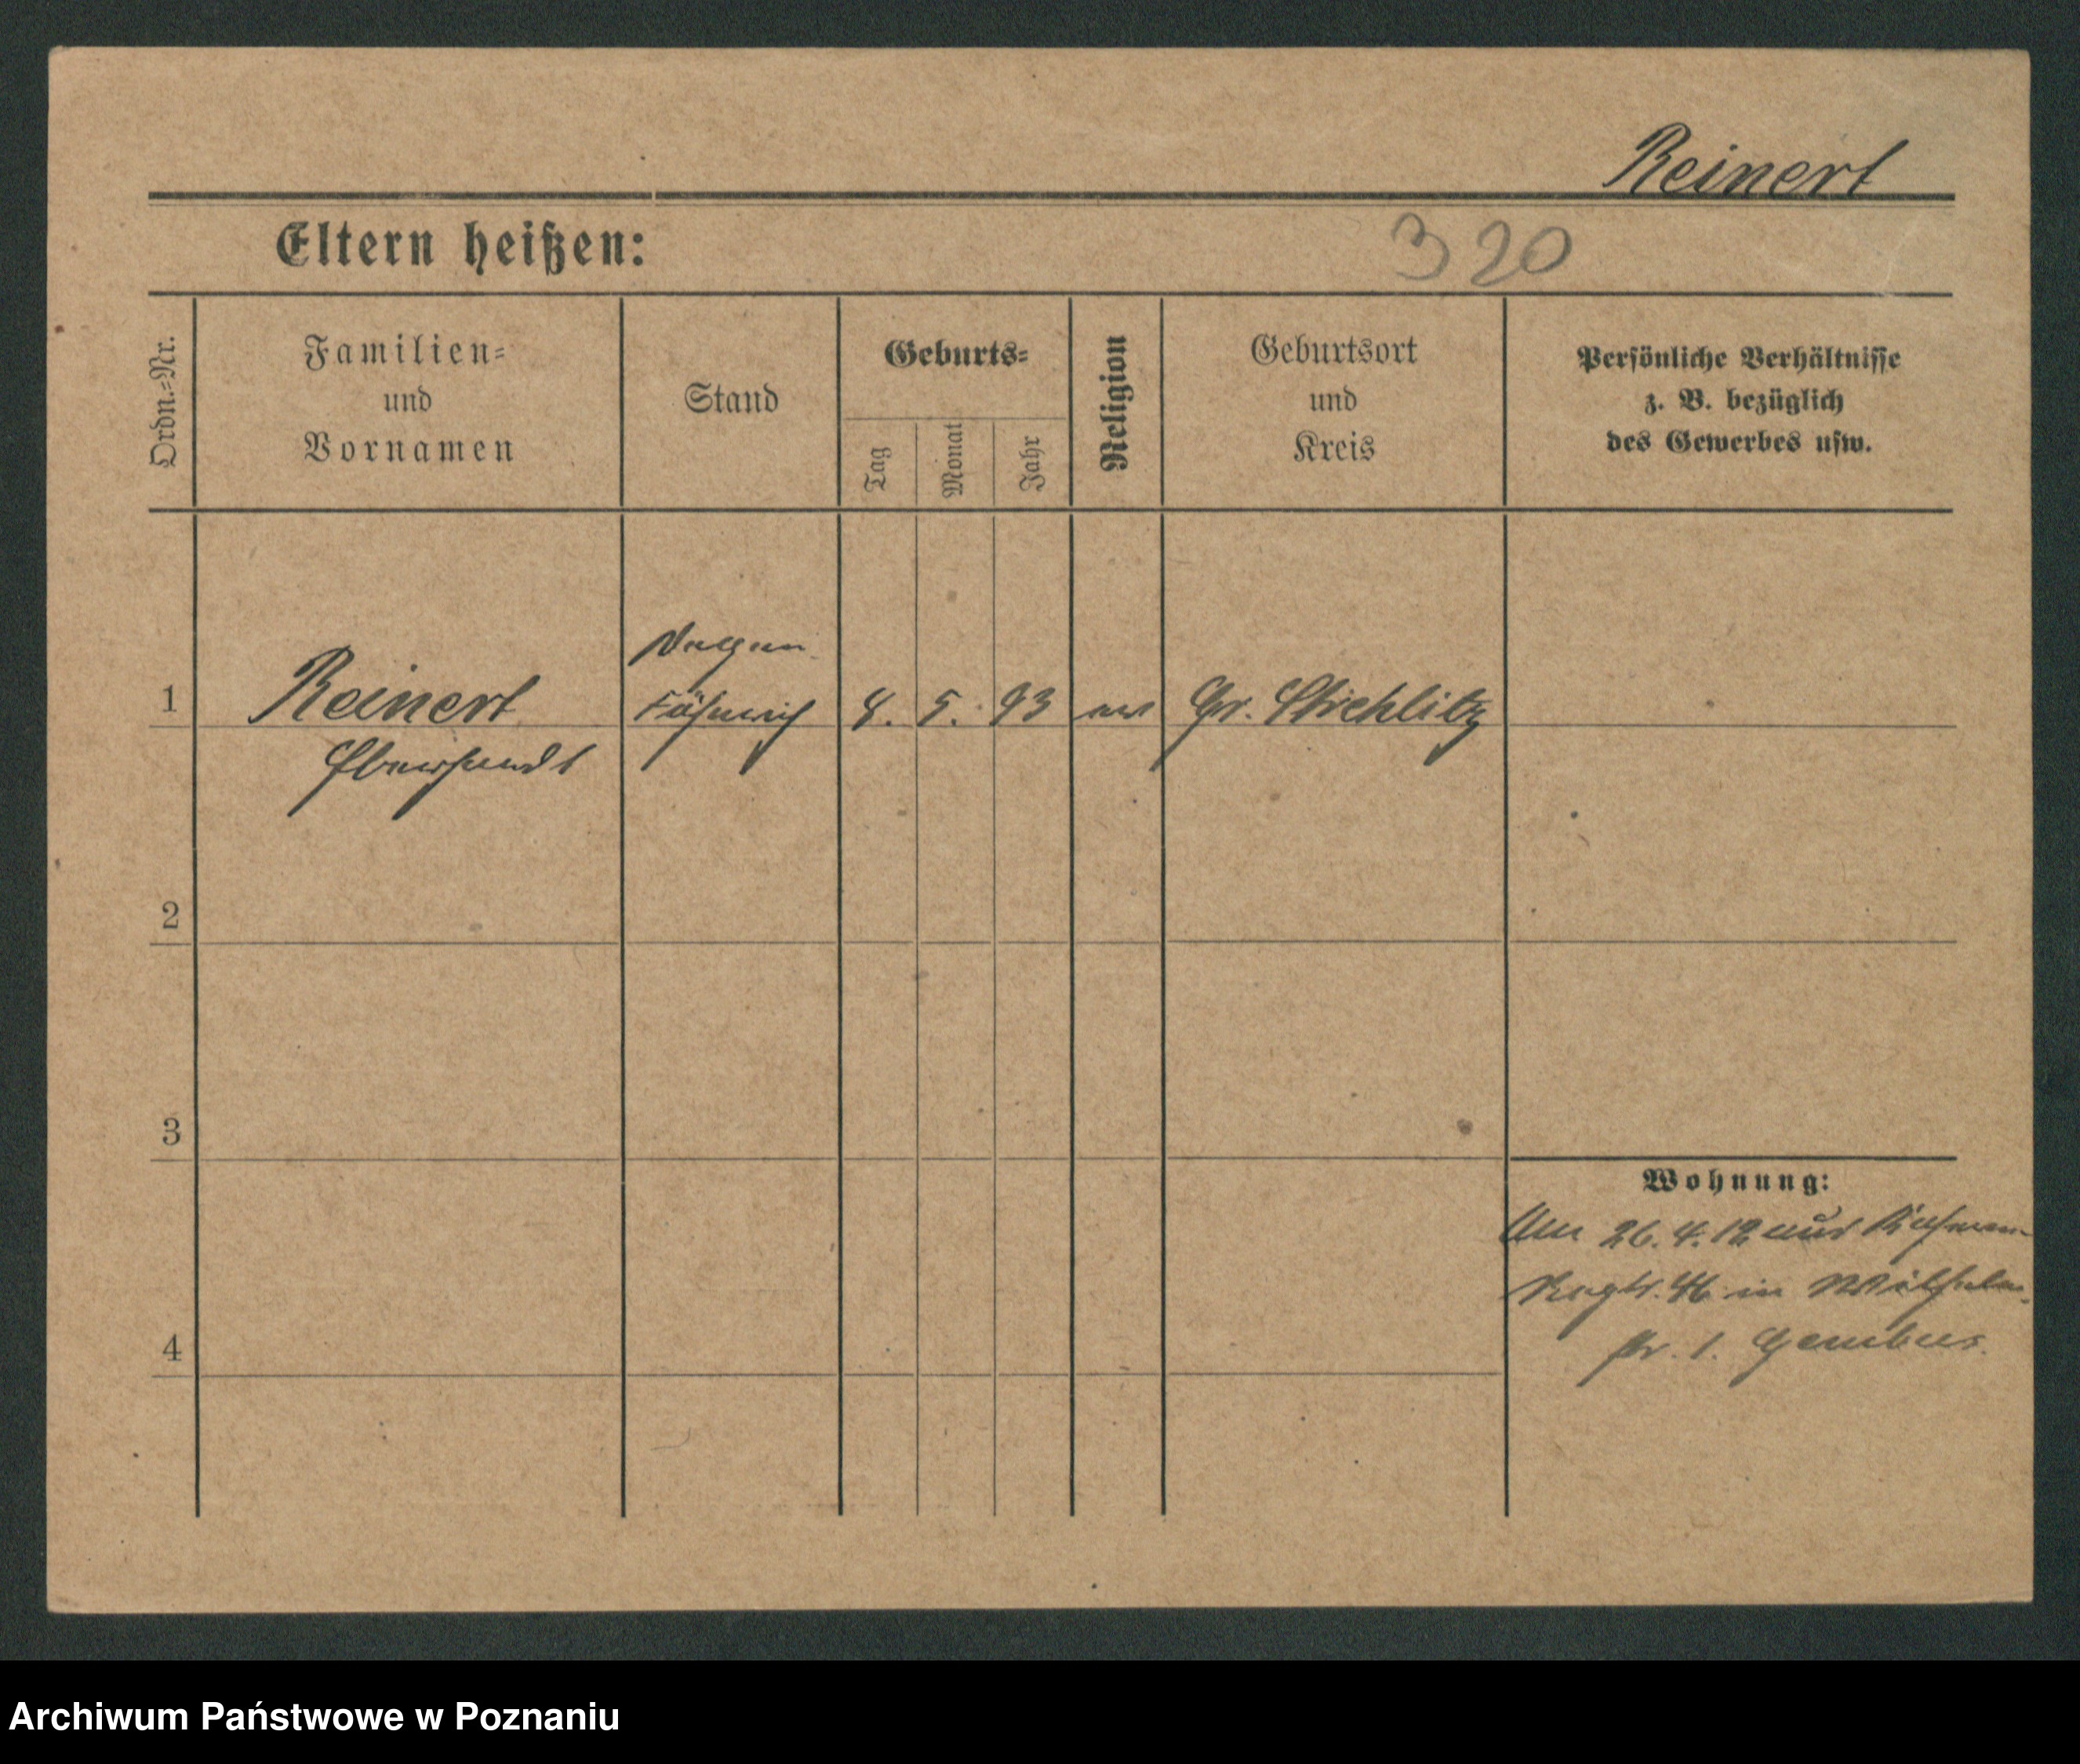 Reinert
Eltern heißen:
320
Ordn.-Nr.
Familien-
und
Vornamen
Stand
Geburts-
Tag
Monat
Jahr
Religion
Geburtsort
und
Kreis
Persönliche Verhältnisse
z. B. bezüglich
des Gewerbes usw.
1
Reinert
Fähnrich
8. 5. 93
Gr. Strehlitz
2
3
4
Wohnung:
26. 4. 12 aus
Regts. 46 in
1.
Archiwum Państwowe w Poznaniu